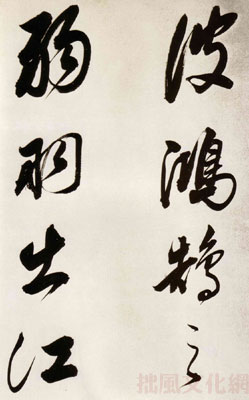 波鴻鵠之
弱羽出江
拙風文化網